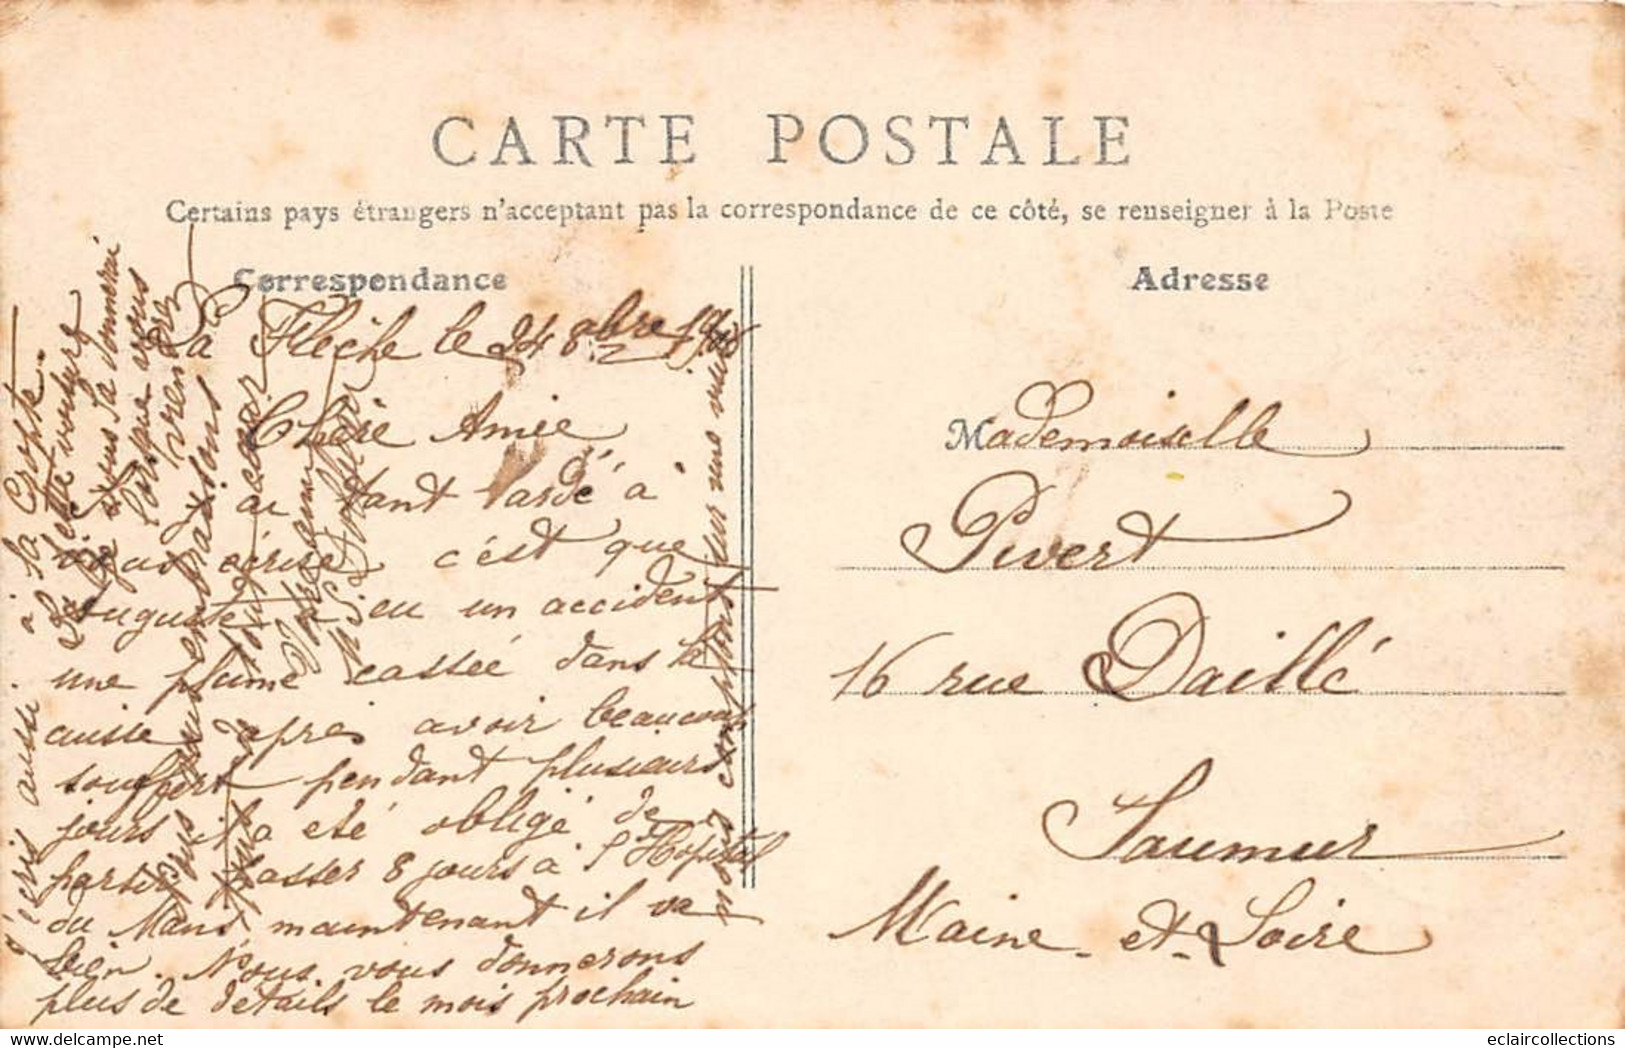 CARTE POSTALE
Certains pays étrangers n'acceptant pas la correspondance de ce côté, se renseigner à la Poste
Correspondance
Adresse
La Flèche le 24 8bre 1908
Chère Amie
Si j'ai tant tardé à
vous écrire c'est que
Auguste a eu un accident
une plume cassée dans la
cuisse après avoir beaucoup
souffert pendant plusieurs
jours il a été obligé de
partir passer 8 jours à l'Hopital
du Mans maintenant il va
bien. Nous vous donnerons
plus de détails le mois prochain
nous comptons sur une
J'écris aussi à la Cropte.
je vous la donnerai
lorsque vous
viendrez
vous embrassons
Mademoiselle
Pivert
16 rue Daillé
Saumur
Maine-et-Loire
eclaircollections